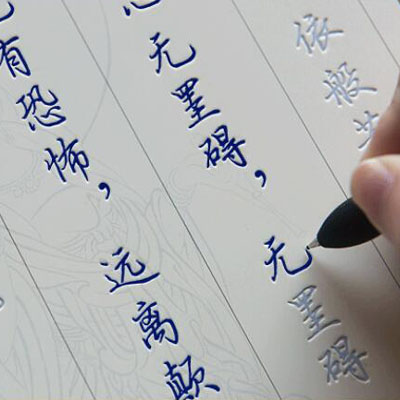 依般
无罣碍,无罣碍
有恐怖,远离颠